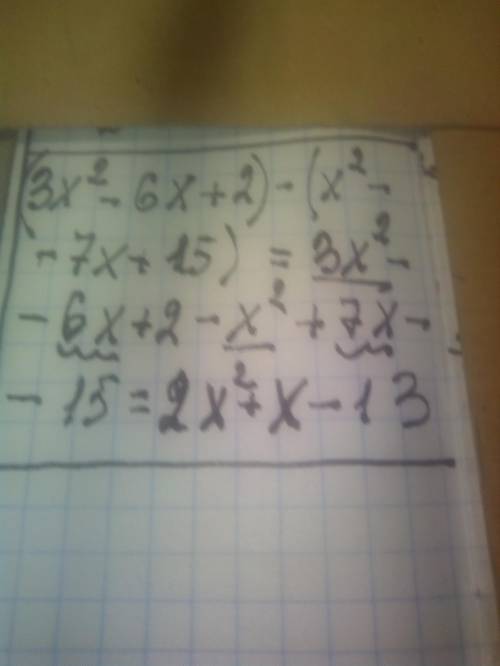 (3x² - 6x + 2) - (x² -
- 7x + 15) = 3x² -
- 6x + 2 - x² + 7x -
- 15 = 2x² + x - 13